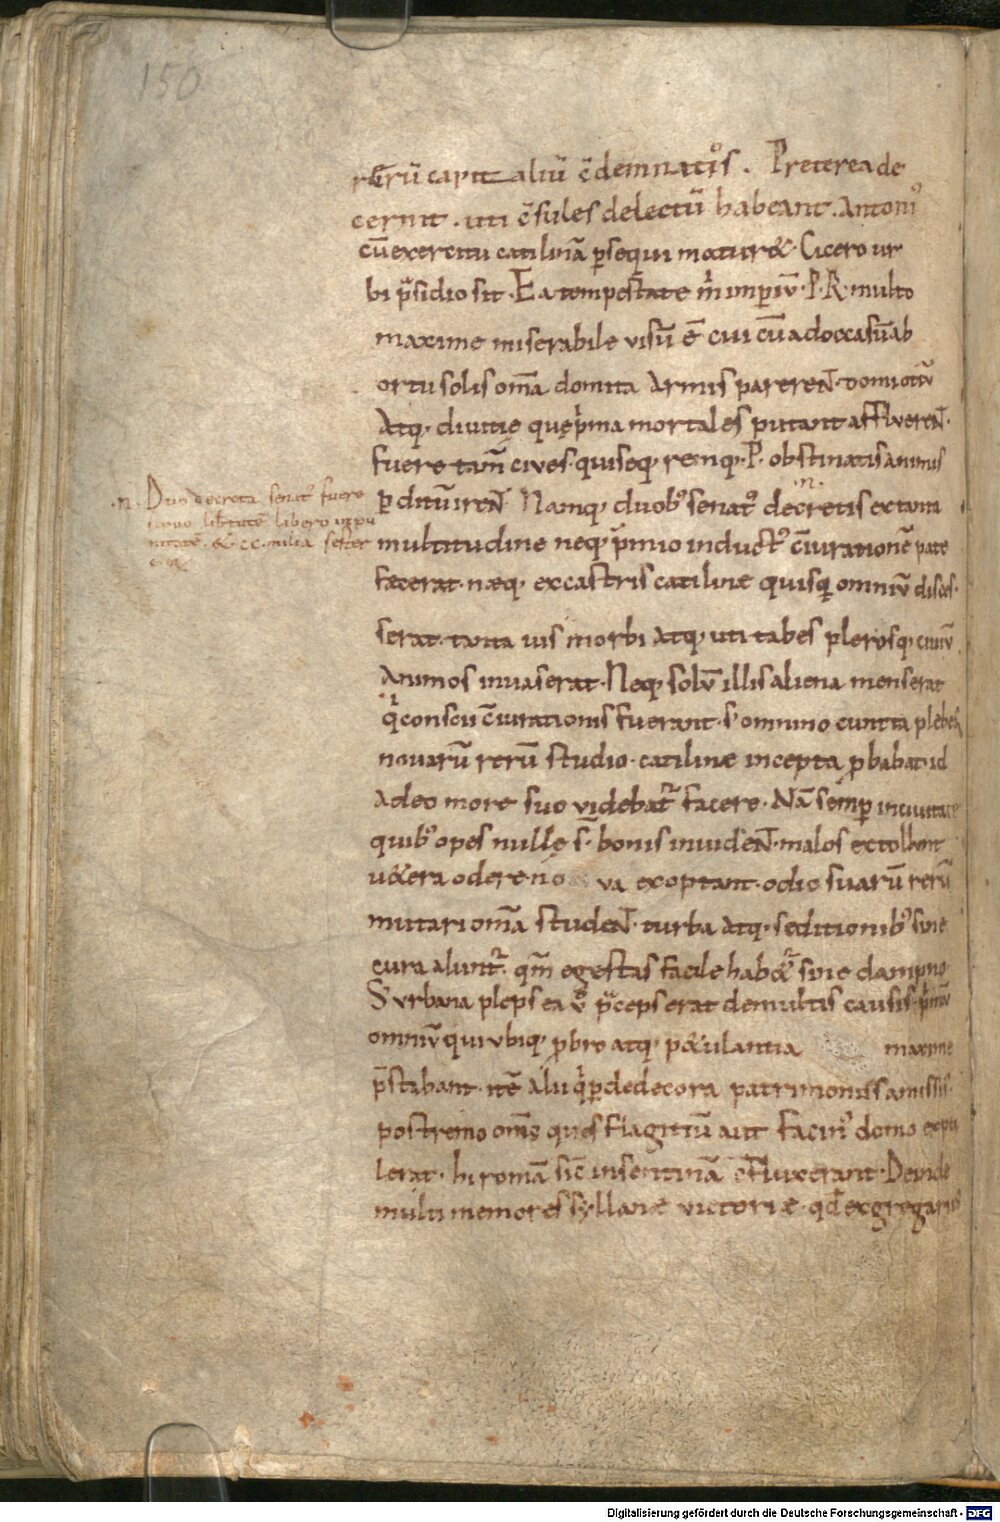 150
rerū capitaliū c̄demnatꝰ. Preterea de
cernit. uti c̄sules delectū habeant. Antoniꝰ
cū exercitu catilinā ꝑsequi matur&. Cicero ur
bi p̄sidio sit. Ea tempestate m̄ imꝑiū. P. R. multo
maxime miserabile visū ē cui cū ad occasū ab
ortu solis om̄a domita Armis pareren̄t. domi otiū
Atq; diuitię quę pͥma mortales putant affluereN̄t.
fuere tam̄ cives. qui seq; remq; P. obstinatis animis
ꝑditū ireN̄t Namq; duobꝰ senatꝰ decretis ex tanta
·n·
·n· Duo decreta senatꝰ fuere
seruo lib̄tatē libero īpu
nitatē. & cc. milia sester
multitudine neq; p̄mio inductꝰ c̄iurationē pate
fecerat. næq; ex castris catilinæ quisq̄ omniū disces.
serat. tanta uis morbi Atq; uti tabes plerosq; ciuiū
Animos inuaserat. Neq; solū illis aliena mens erat
qͥ conscii c̄iurationis fuerant. s; omnino cuncta plebes
nouarū rerū studio. catilinæ incepta ꝓbabat. id
Adeo more suo videbatᷣ facere. Nā semꝑ in ciuitate
quibꝰ opes nullę s̄. bonis inuideN̄t. malos extollunt
u&era odere. no va exoptant. odio suarū rerū
mutari om̄a studeN̄t. turba Atq; seditionibꝰ sine
cura aluntᷣ. qm̄ egestas facile hab&ᷣ sine dampno
S; urbana pleps ea v̊ p̄ceps erat de multis causis. pͥmū
omniū qui ubiq; ꝓbro atq; p&ulantia maxime
p̄stabant. itē alii qͥ ꝑ dedecora patrimoniis samissis.
postremo om̄s quos flagitiū aut facinꝰ domo expu
lerat. hi romā sic̄ in sentinā c̄fluxerant. Deinde
multi memores syllanæ victoriæ. qd̄ ex gregariis
Digitalisierung gefördert durch die Deutsche Forschungsgemeinschaft - DFG